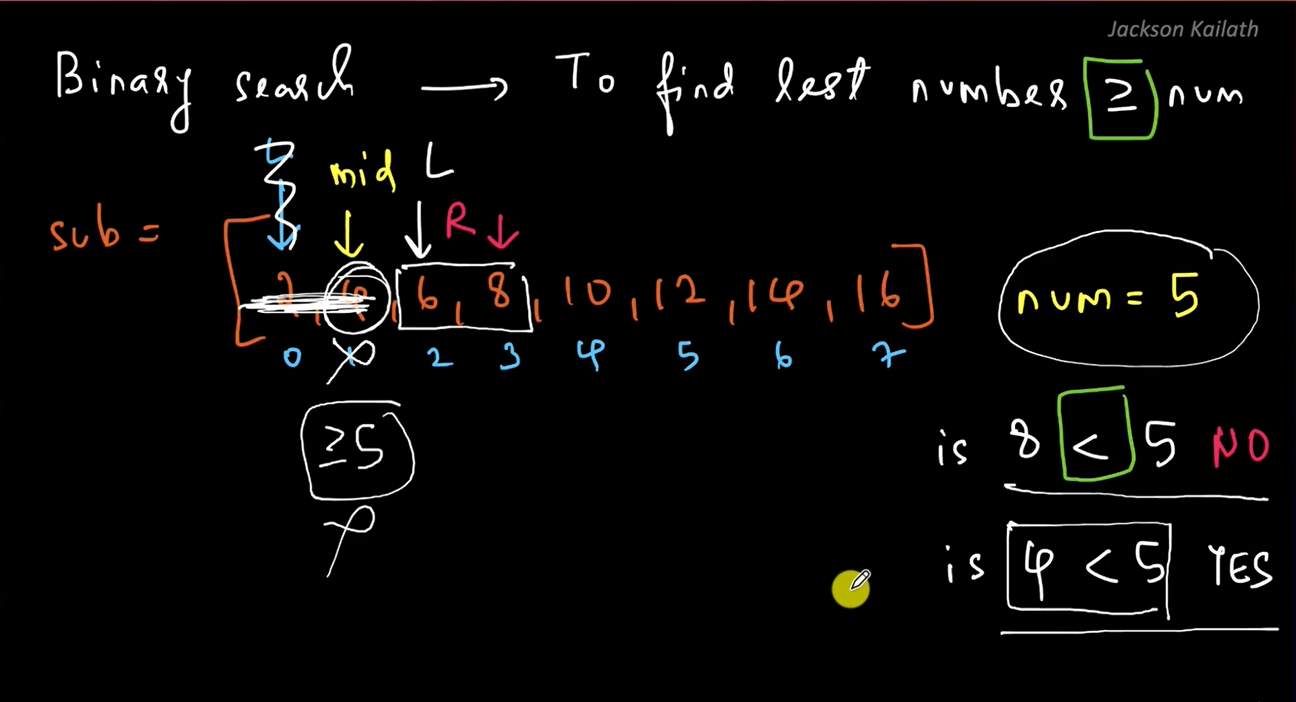 Jackson Kailath
Binary search → To find lest number ≥ num
mid L
R
sub = [2, 4, 6, 8, 10, 12, 14, 16]
num = 5
0 1 2 3 4 5 6 7
≥5
is 8 < 5 NO
is 4 < 5 YES